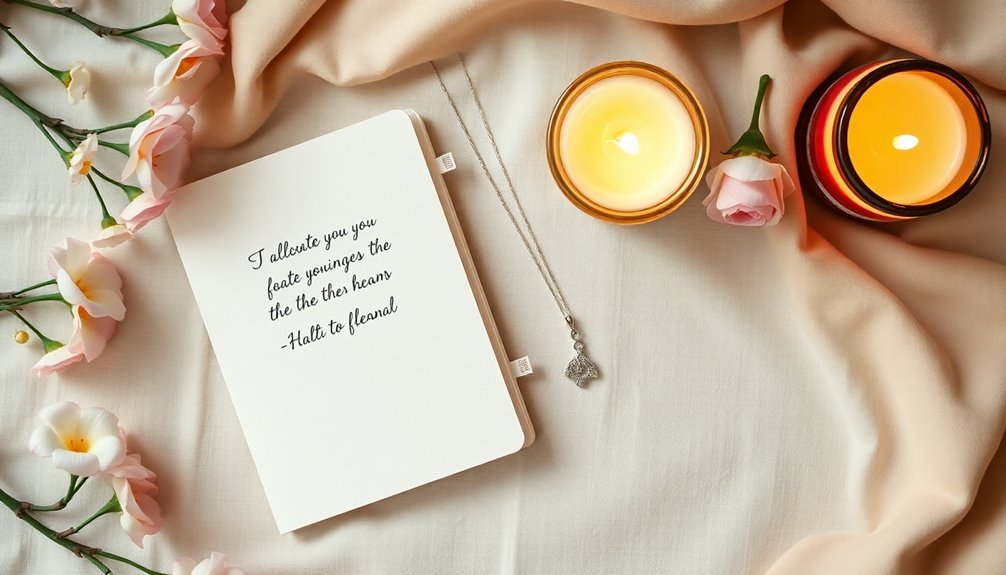 I allcute you you
foate youinges the
the the thes heans
-Halti to flesnal